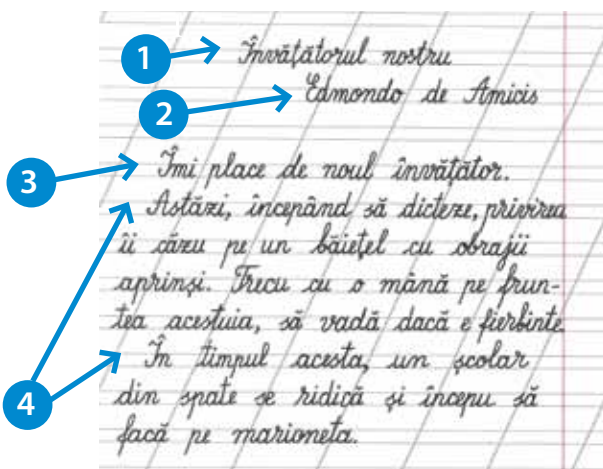 1 Învățătorul nostru
2 Edmondo de Amicis
3 Îmi place de noul învățător.
Astăzi, începând să dicteze, privirea
îi căzu pe un băiețel cu obrajii
aprinși. Trecu cu o mână pe frun-
tea acestuia, să vadă dacă e fierbinte.
4 În timpul acesta, un școlar
din spate se ridică și începu să
facă pe marioneta.